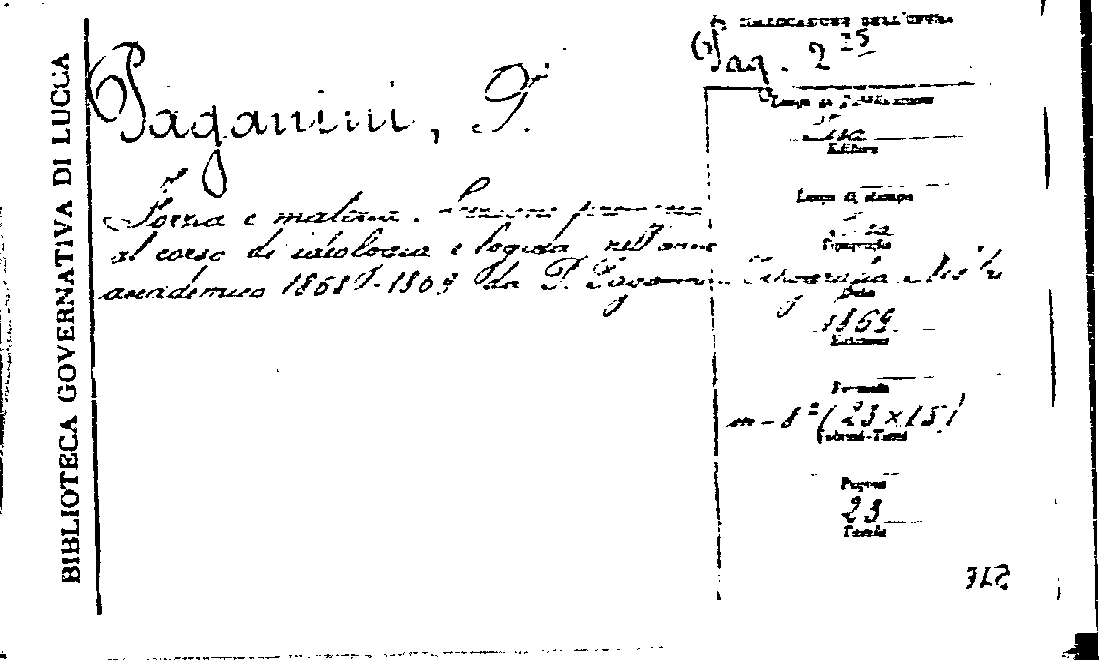 BIBLIOTECA GOVERNATIVA DI LUCCA
COLLOCAZIONE DELL'OPERA
Pag. 2 25
Paganini, P.
Forza e materia. Lezione premessa
al corso di ideologia e logica, nell'anno
accademico 1868-1869 da P. Paganini
Luogo di pubblicazione
Pisa
Editore
Luogo di stampa
Pisa
Tipografia
Tipografia Nistri
Data
1869
Edizione
Formato
in-8º (23×15)
Volumi-Tomi
Pagine
23
Tavole